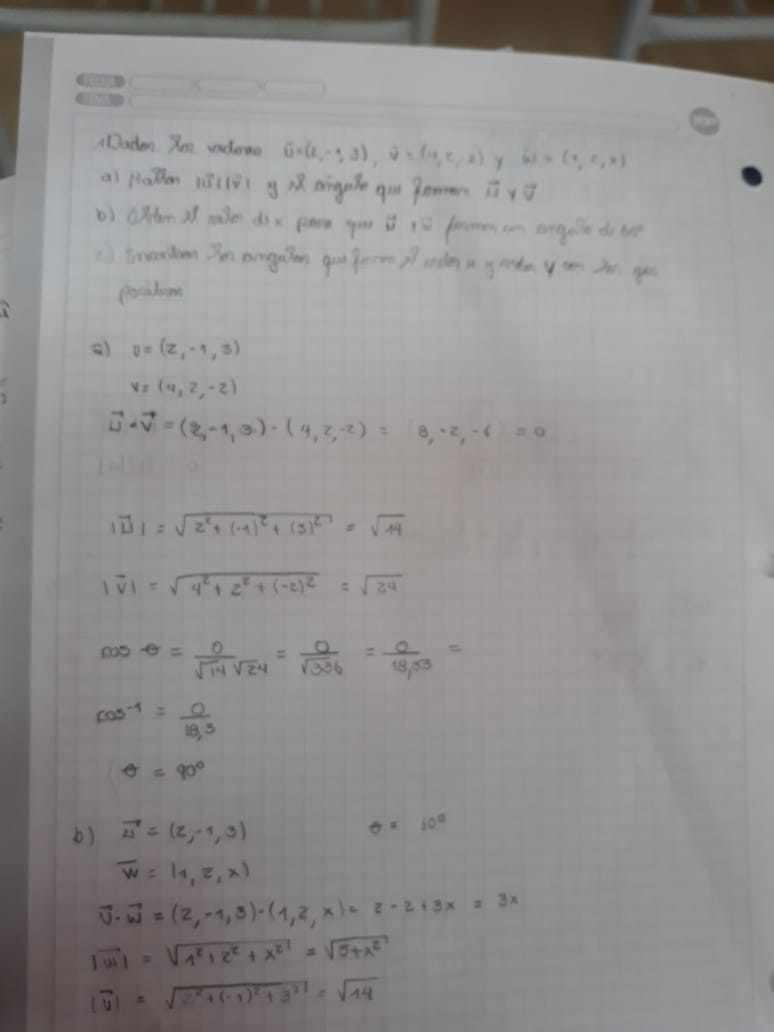 FECHA
TEMA
1. Dados los vectores u=(2,-1,3), v=(4,2,-2) y w=(1,2,x)
a) Hallar |u||v| y el ángulo que forman u y v
b) el valor de x para que u y w forman un ángulo de 60º
c) Encontrar los ángulos que forma el vector u y vector v con los
a) u=(2,-1,3)
v=(4,2,-2)
u·v=(2,-1,3)·(4,2,-2) = (8,-2,-6) = 0
|u| = √(2²+(-1)²+(3)²) = √14
|v| = √(4²+2²+(-2)²) = √24
cos θ = 0/(√14 √24) = 0/√336 = 0/18,33 =
cos⁻¹ = 0/18,3
θ = 90º
b) u=(2,-1,3) θ = 60º
w = (1,2,x)
u·w=(2,-1,3)·(1,2,x)= 2-2+3x = 3x
|w| = √(1²+2²+x²) = √(5+x²)
|u| = √(2²+(-1)²+3²) = √14